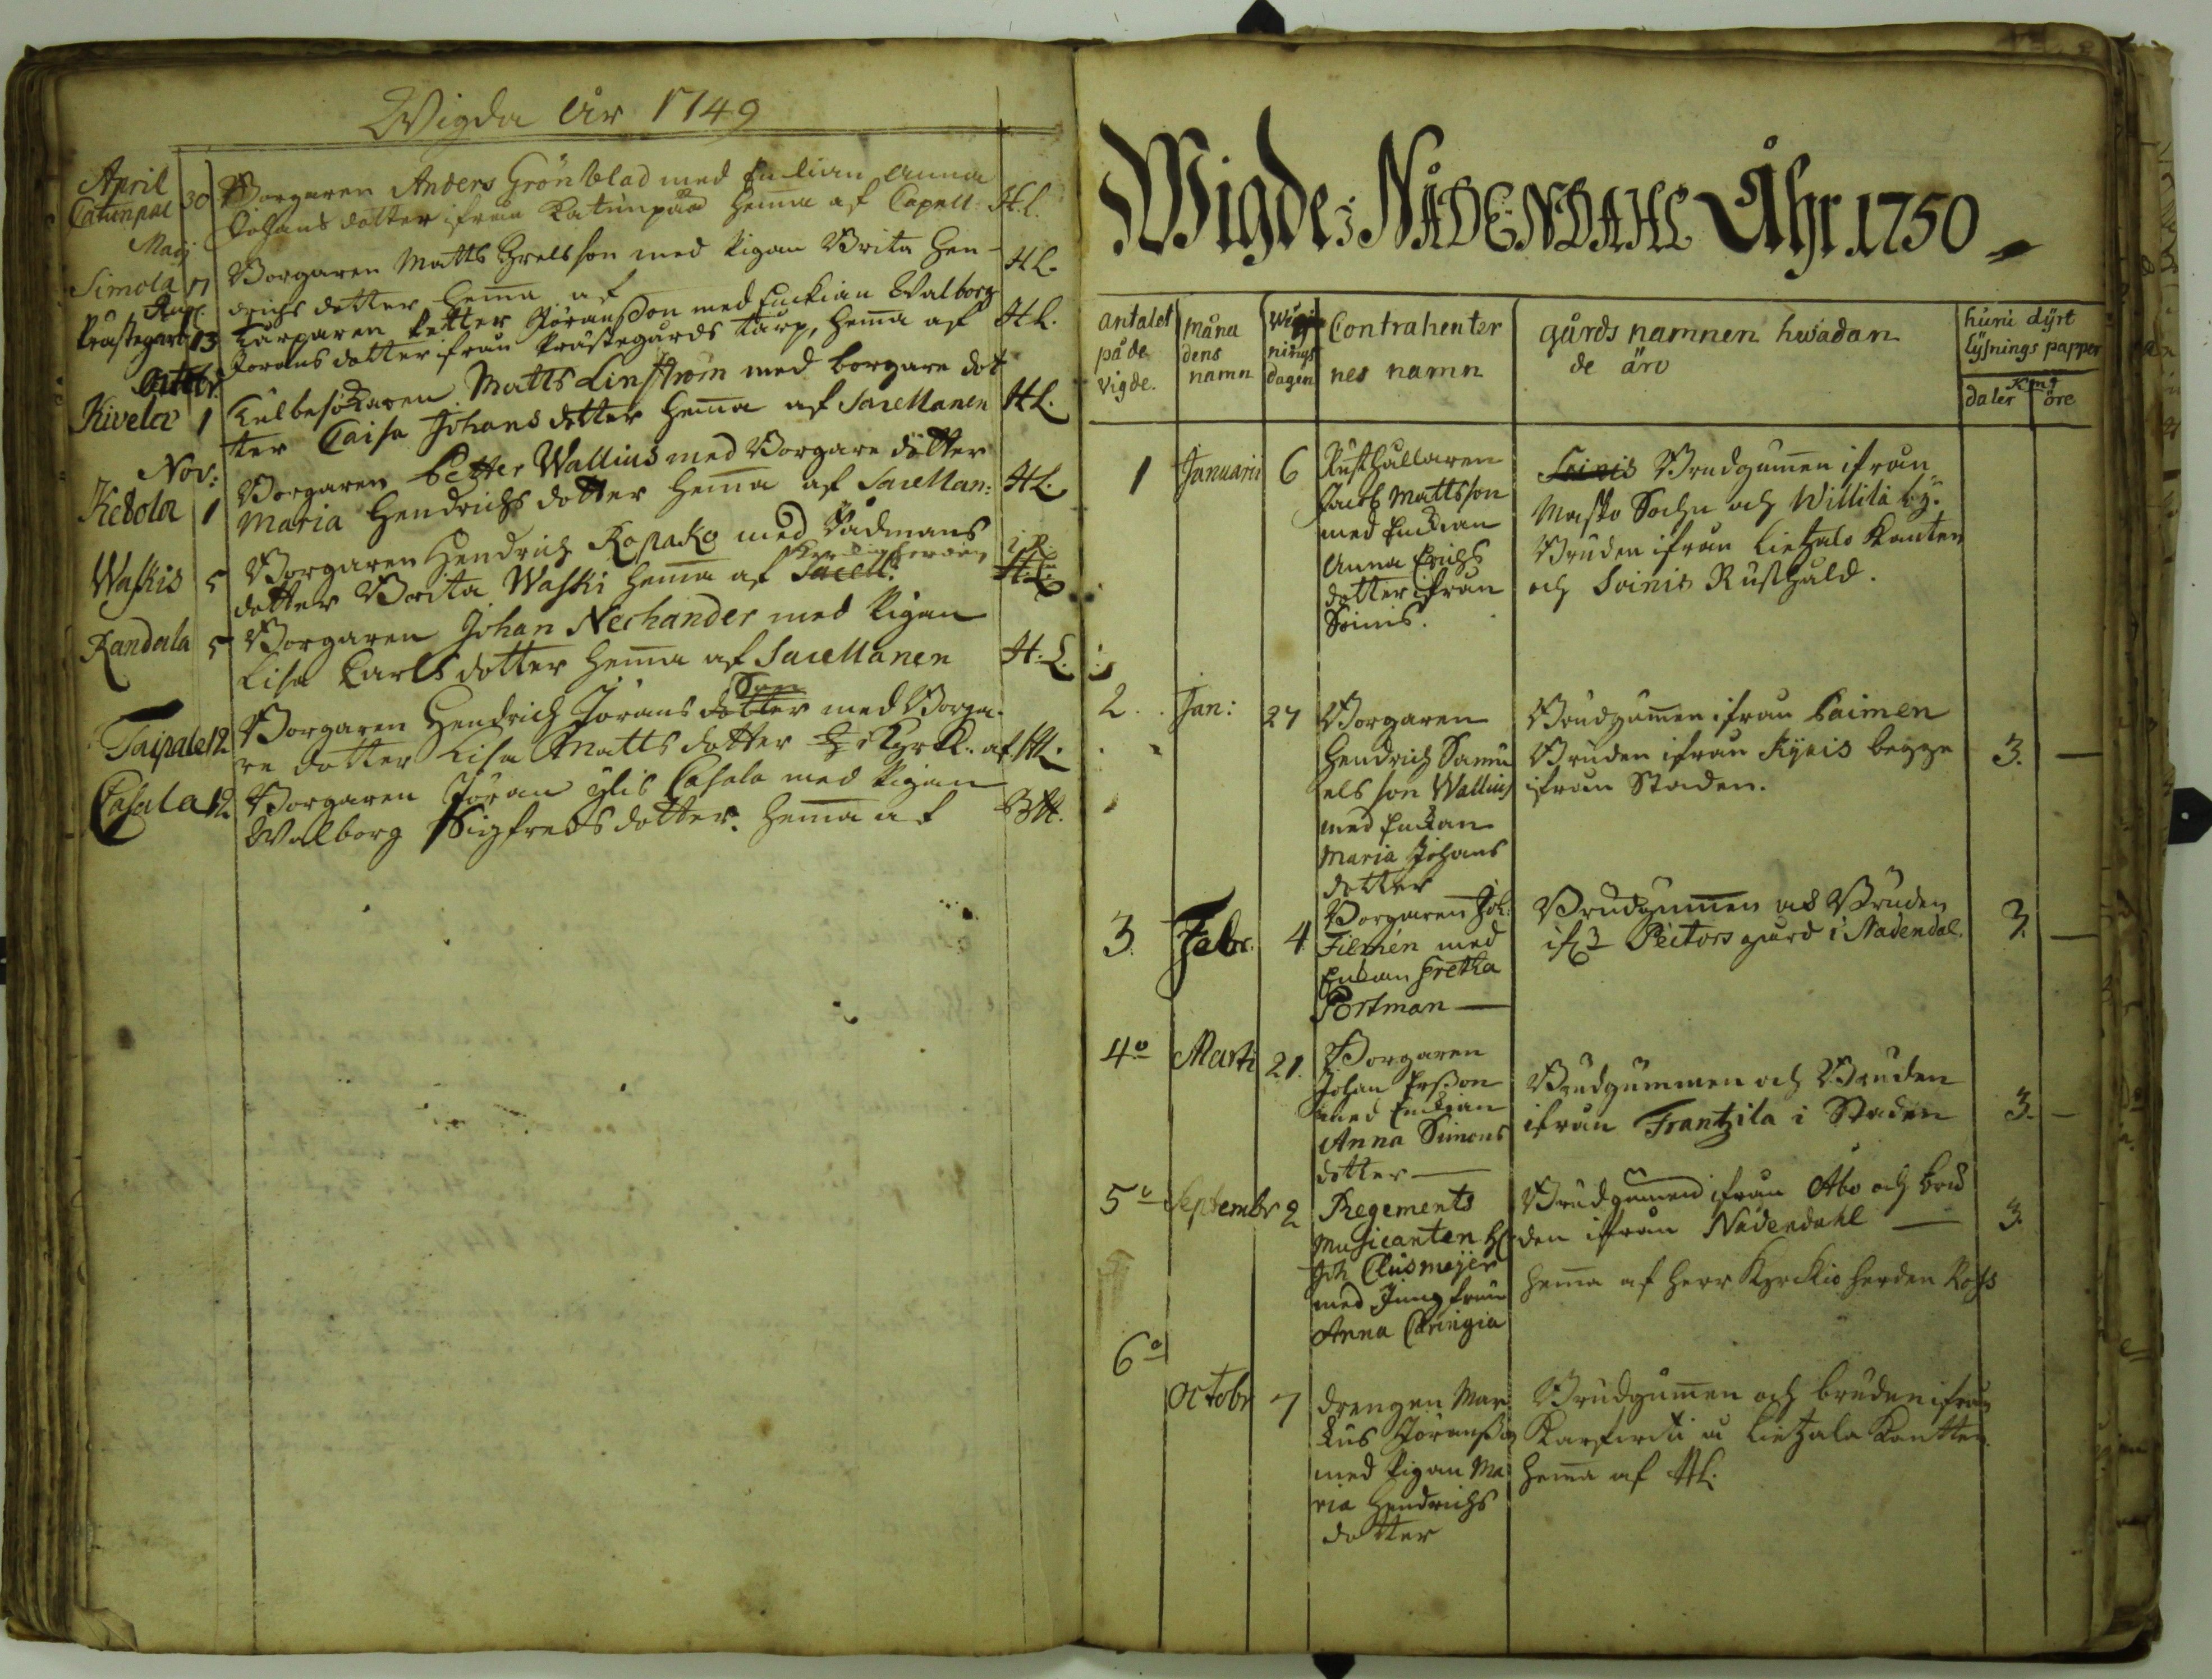 Wigda Åhr 1749
April
Catunpää 30 Borgaren Anders Grönblad med Enckian Anna
Johans dotter ifrån Katunpää hema af Capell. H.L.
Maij
Simola 17 Borgaren Matts Grelsson med Pigan Brita Hen-
drichs dotter hema af H.L.
Prästegård 13 Torparen Petter Jöransson med Enckian Walborg
Jorans dotter ifrån Prästegårds torp, hema af H.L.
Octobr.
Kivela 1 Matts Linström med borgare dot
ter Caisa Johans dotter hema af Sacellanen H.L.
Nov:
Ketola 1 Borgaren Petter Wallius med Borgare dotter
Maria Hendrichs dotter hema af Sacellan: H.L.
Waskis 5 Borgaren Hendrich Kopako med Rådmans
dotter Brita Waski hema af Sacell: Kyrckioherden H.L.
Randala 5 Borgaren Johan Nechander med Pigan
Lisa Carls dotter hema af Sacellanen H.L.
Taipale 12 Borgaren Hendrich Jörans dotter Son med Borga-
re dotter Lisa Matts dotter i Kyrk. af HL.
Casala 12. Borgaren Jöran Casala med Pigan
Walborg Sigfreds dotter. hema af
Wigde i NÅDENDAHL Åhr 1750
antalet på de vigde. | måna dens namn | wigningsdagen | Contrahenter nes namn | gårds namnen hwadan de äro | huru dyrt lysnings papper Kmt daler öre
1 Januarii 6 Rusthållaren
Jacob Mattsson
med Enckian
Anna Erichs
dotter ifrån
Soinis.
Soinis Brudgumen ifrån
Masko Sochn och Willila by.
Bruden ifrån Lietzala Kanten
och Soinis Rusthåld.
2. Jan: 27 Borgaren
Hendrich Samu
els son Wallius
med Enckan
Maria Johans
dotter
Brudgumen ifrån Paimen
Bruden ifrån Kynis begge
ifrån Staden. 3. —
3. Febr. 4 Borgaren Joh:
Filmén med
Enkan Gretha
Portman —
Brudgumen och Bruden
ifr. Peitors gård i Nadendal. 3. —
4o Marti 21. Borgaren
Johan Ersson
med Enckian
Anna Simons
dotter —
Brudgummen och Bruden
ifrån Frantzila i Staden 3. —
5o Septembr 2 Regements
Musicanten H.
Joh Clusmejer
med Jungfrun
Anna Caringia
Brudgumen ifrån Åbo och bru
den ifrån Nådendahl — 3.
hema af Herr Kyrckio herden Ross
6o
Octobr 7 drengen Mar
kus Jöransson
med Pigan Ma
ria Hendrichs
dotter
Brudgumen och bruden ifrån
Lietzala Kantten.
hema af HL.